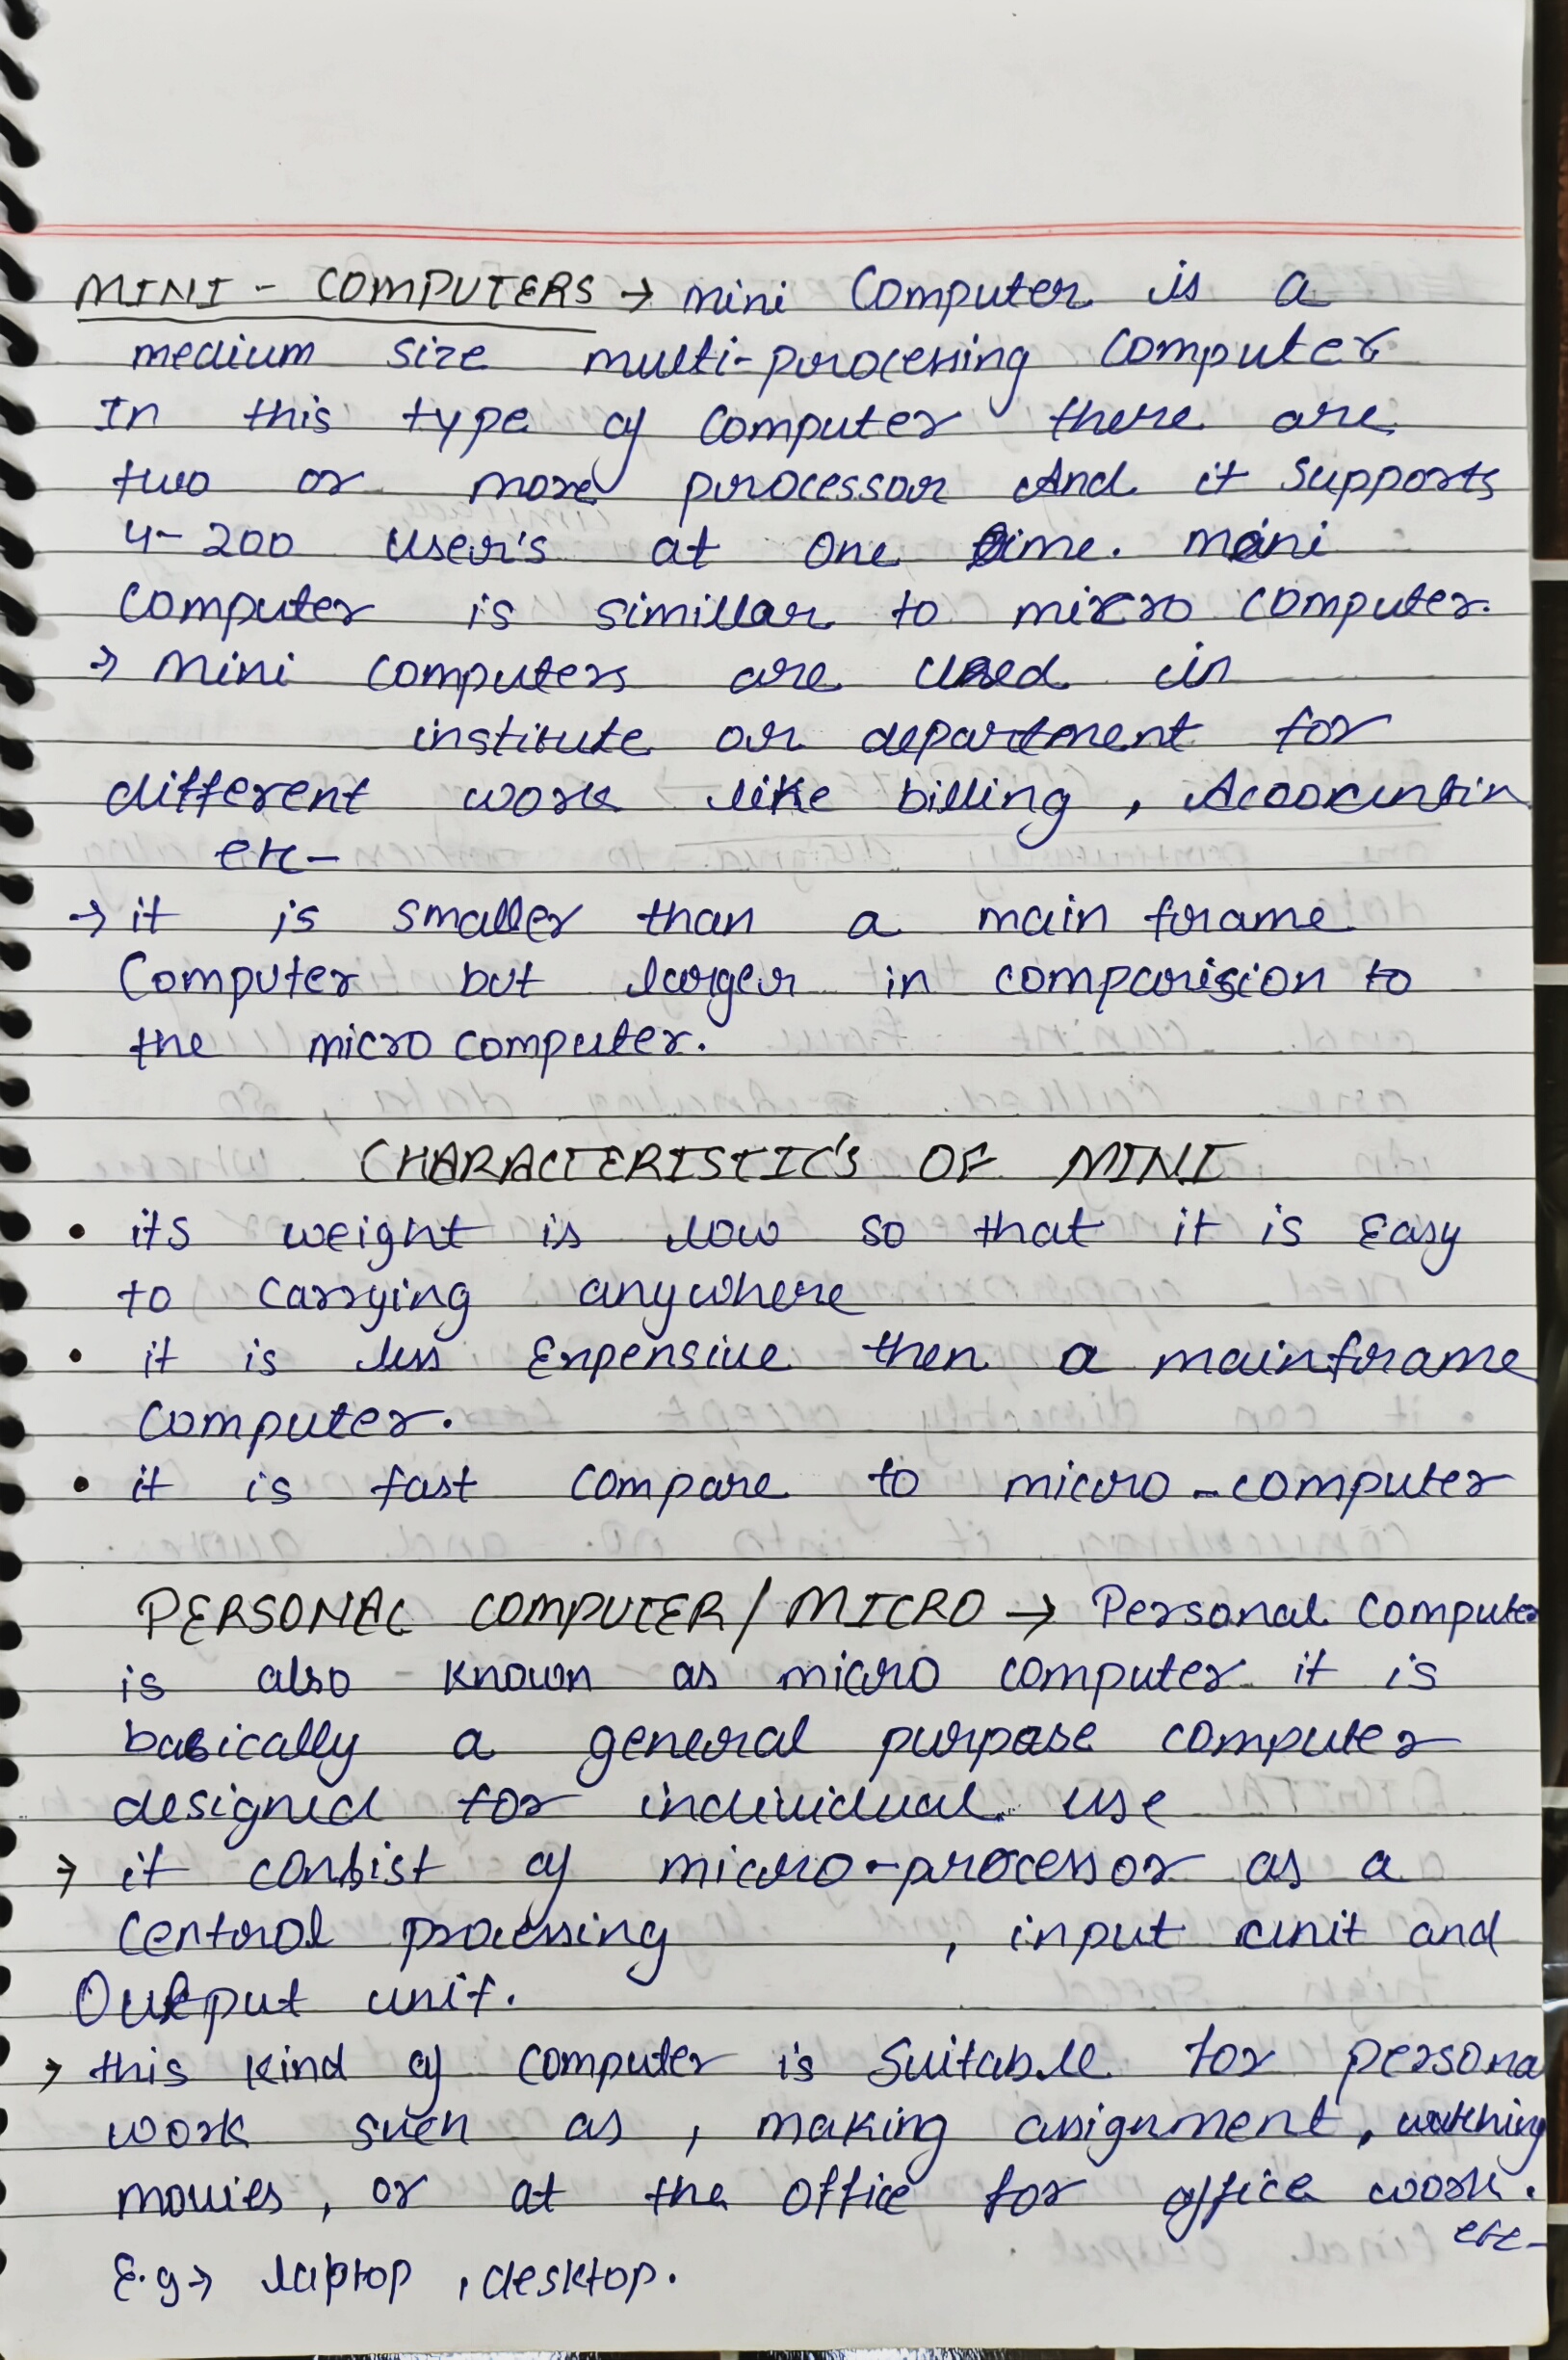 MINI - COMPUTERS → mini Computer is a
medium size multi-processing Computer
In this type of Computer there are
two or more processor And it Supports
4-200 user's at one time. mini
Computer is simillar to micro computer.
→ Mini computers are used in
institute or department for
different work like billing, Accountin
etc-
→ it is smaller than a main frame
Computer but larger in comparision to
the micro computer.
CHARACTERISTIC'S OF MINI
• its weight is low so that it is Easy
to Carrying anywhere
• it is less Expensive then a mainframe
Computer.
• it is fast Compare to micro-computer
PERSONAL COMPUTER / MICRO → Personal Computer
is also known as micro computer it is
basically a general purpose computer
designed for individual use
→ it consist of micro-processor as a
Central processing , input unit and
Output unit.
→ this kind of computer is Suitable for persona
work such as, making assignment, watching
movies, or at the office for office work.
etc-
E.g → laptop, desktop.